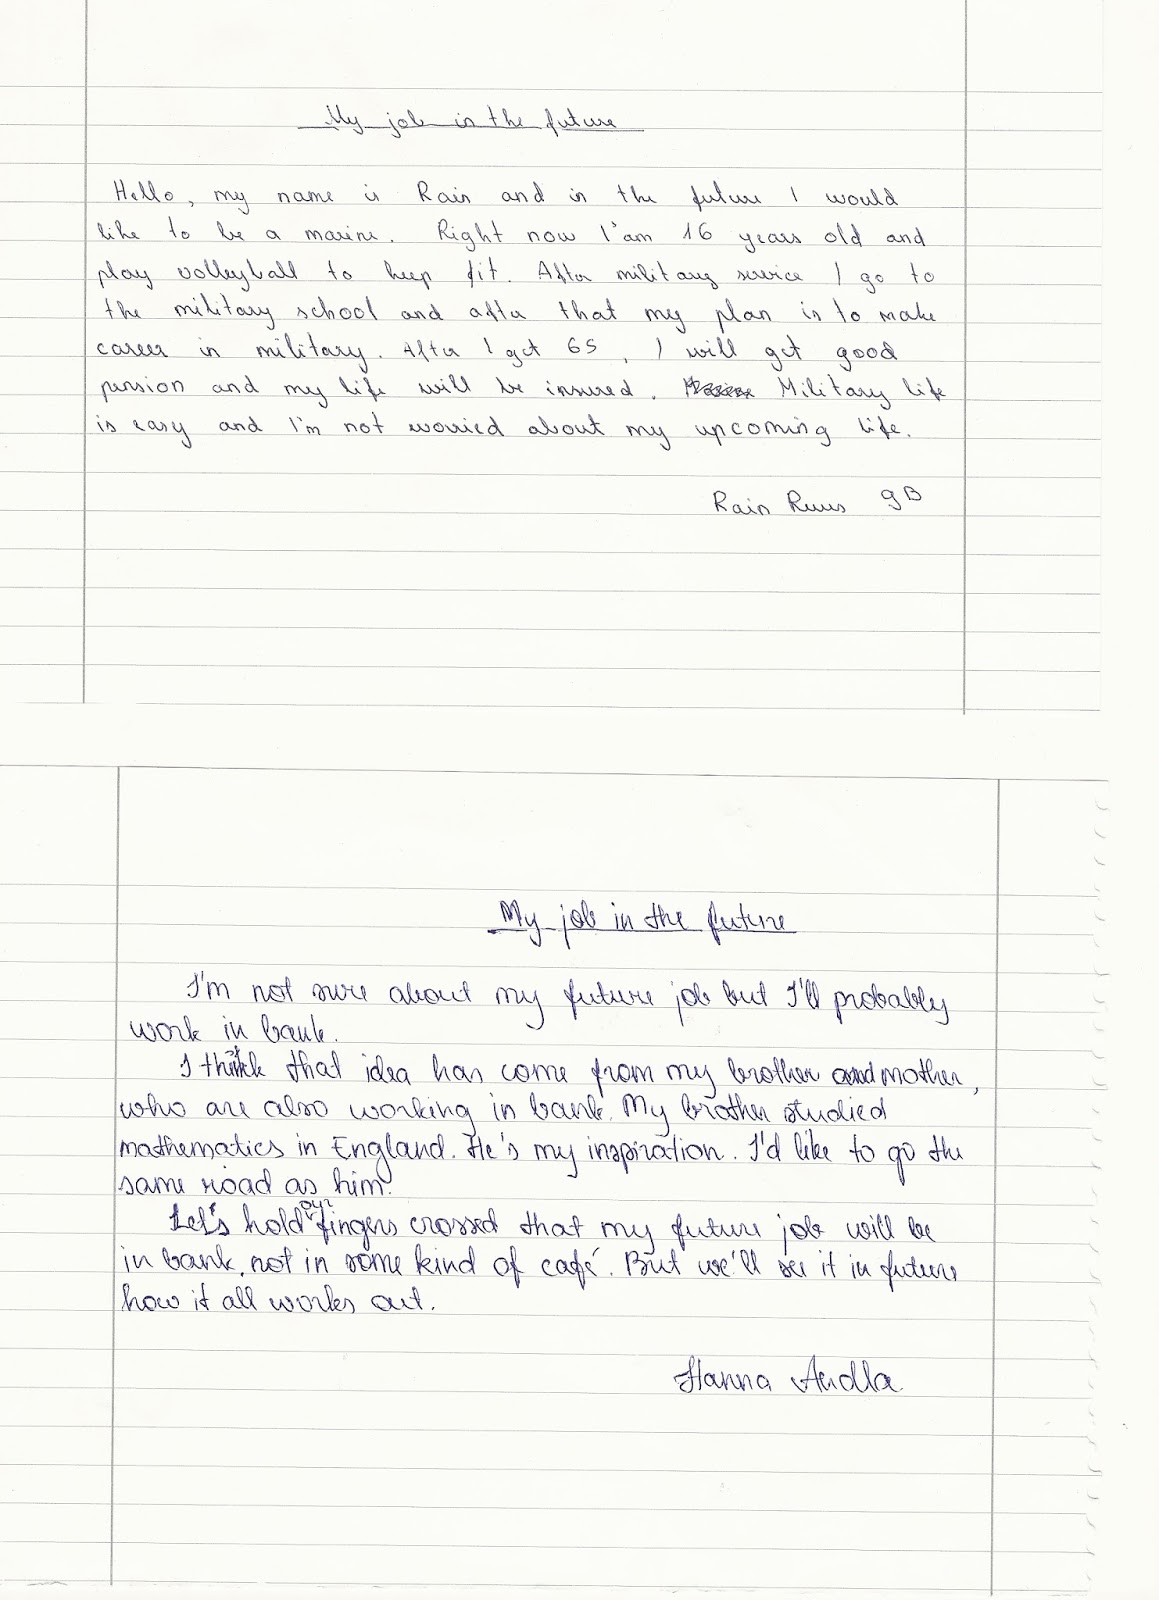 My job in the future
Hello, my name is Rain and in the future I would
like to be a marine. Right now I'am 16 years old and
play volleyball to keep fit. After military service I go to
the military school and after that my plan is to make
career in military. After I get 65, I will get good
pension and my life will be insured. Military life
is easy and I'm not worried about my upcoming life.
Rain Ruus 9B
My job in the future
I'm not sure about my future job but I'll probably
work in bank.
I think that idea has come from my brother and mother,
who are also working in bank. My brother studied
mathematics in England. He's my inspiration. I'd like to go the
same road as him.
Let's hold our fingers crossed that my future job will be
in bank, not in some kind of café. But we'll see it in future
how it all works out.
Hanna